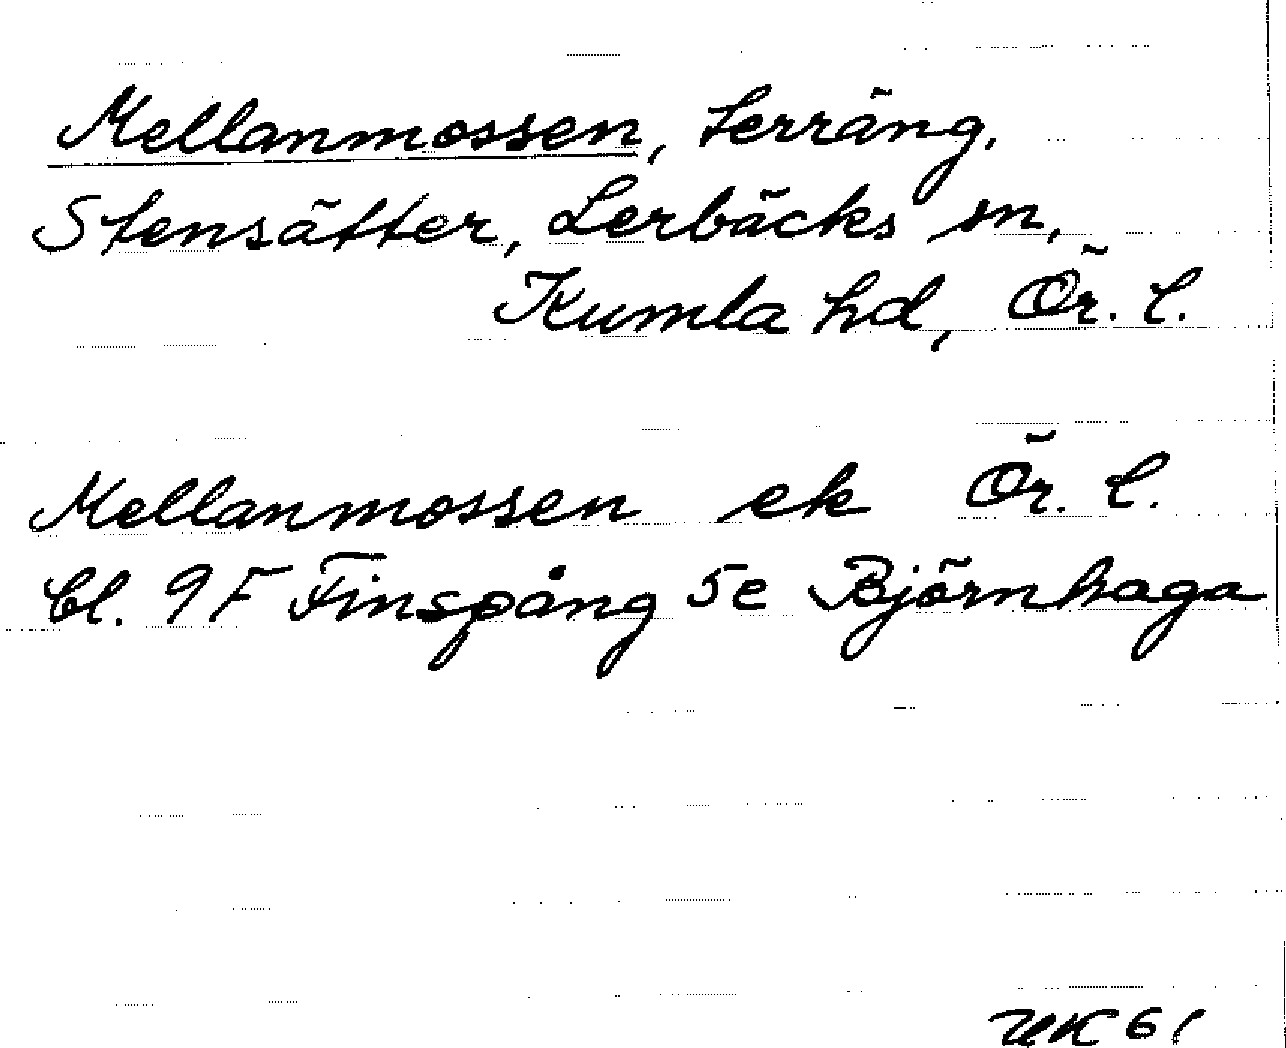 Mellanmossen, terräng.
Stensätter, Lerbäcks sn,
Kumla hd, Ör. l.
Mellanmossen ek Ör. l.
bl. 9F Finspång 5e Björnhaga
61